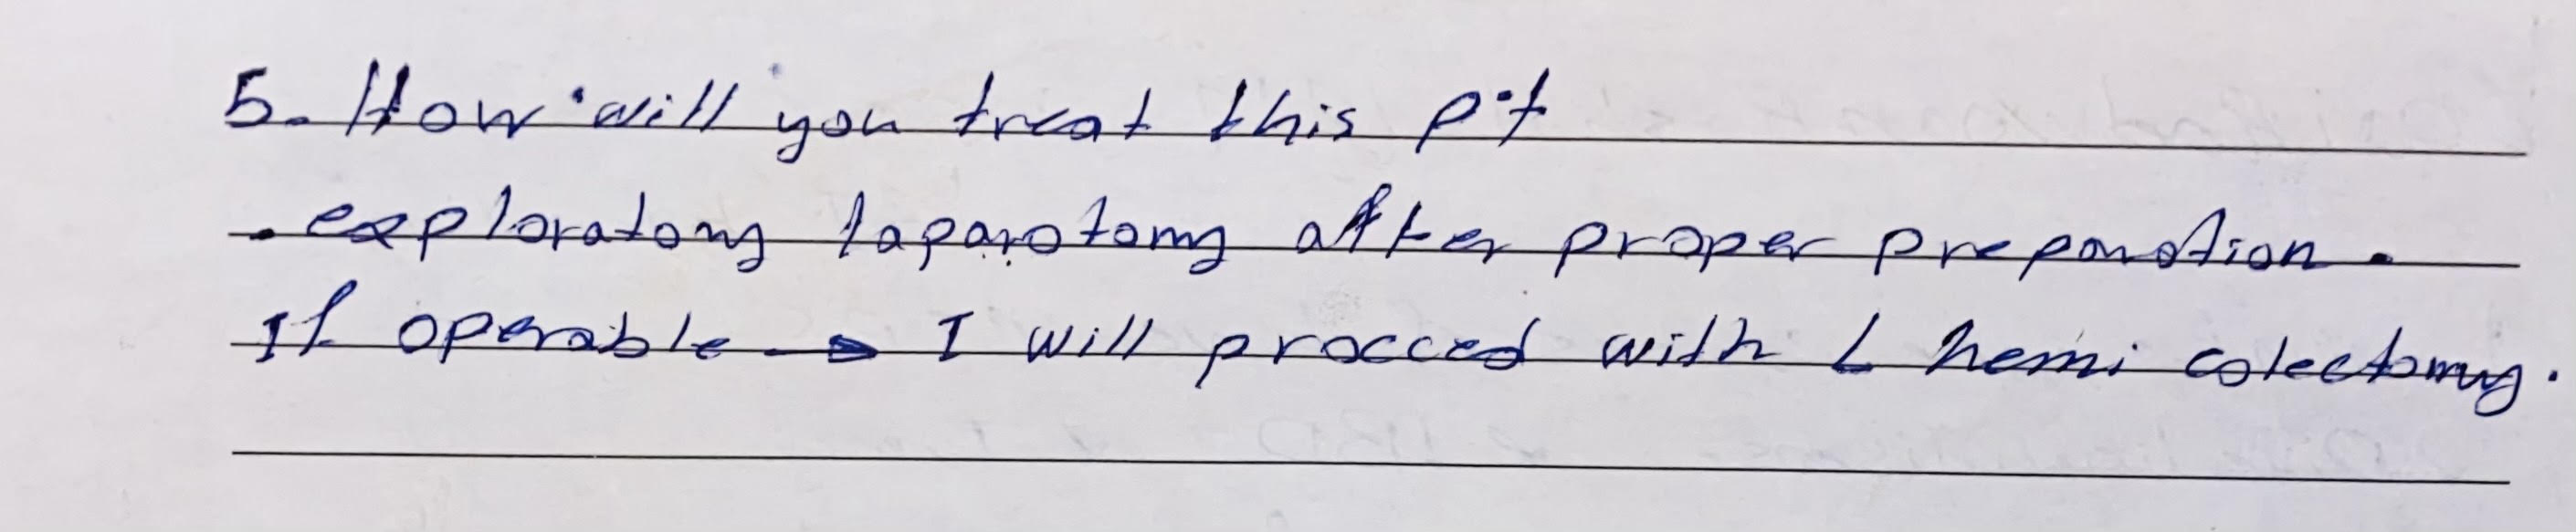 5. How will you treat this p.t
. exploratory laparotomy after proper preparation.
If operable → I will procced with L hemi colectomy.